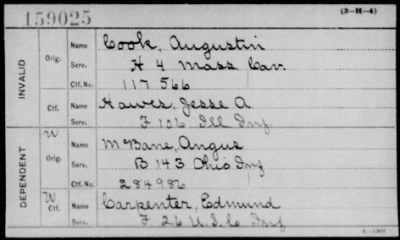 159025
(3-H-4)
INVALID
Orig. Name Cook, Augustin
Serv. H 4 Mass Cav.
Ctf. No. 117566
Ctf. Name Hawes, Jesse A
Serv. F 106 Ill Inf
DEPENDENT
W Orig. Name McBane, Angus
Serv. B 143 Ohio Inf
Ctf. No. 284986
W Ctf. Name Carpenter, Edmund
Serv. F 26 U.S.C. Inf